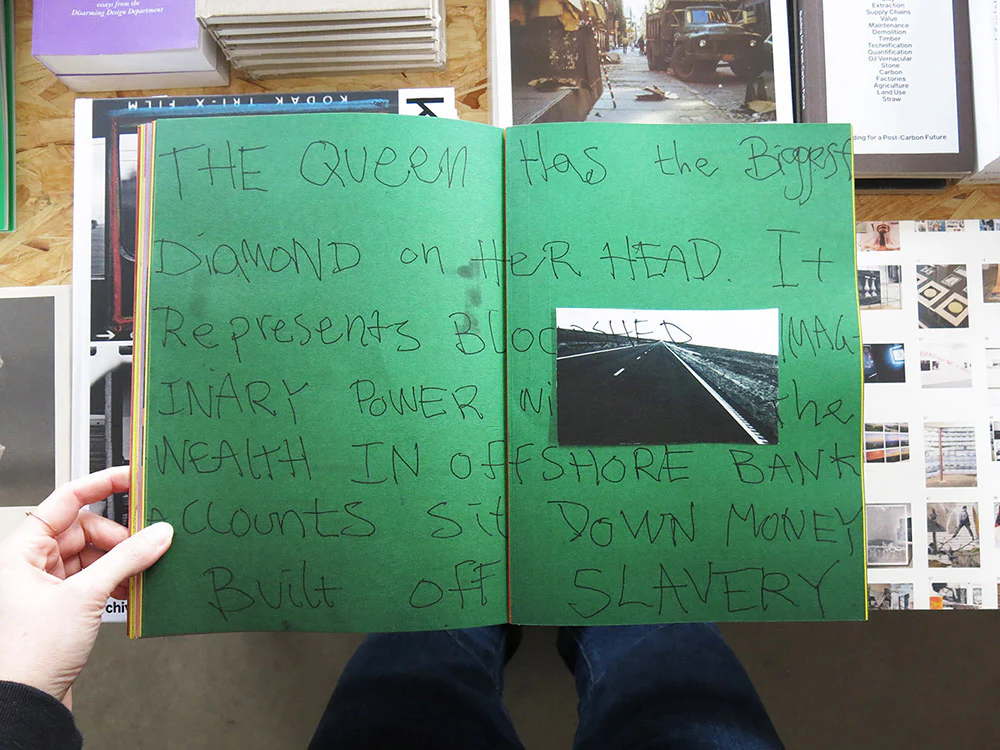 essays from the
Disarming Design Department
KODAK TRI-X FILM
K
Extraction
Supply Chains
Value
Maintenance
Demolition
Timber
Technification
Quantification
Oil Vernacular
Stone
Carbon
Factories
Agriculture
Land Use
Straw
ding for a Post-Carbon Future
THE QUEEN Has the Biggest
DiaMOND on HeR HEAD. It
Represents BlooDSHED IMAG-
INARY POWER wi the
WEALTH IN OffSHORE BANK
ACCOUNTS sit DOWN MONEY
Built off SLAVERY
chiv